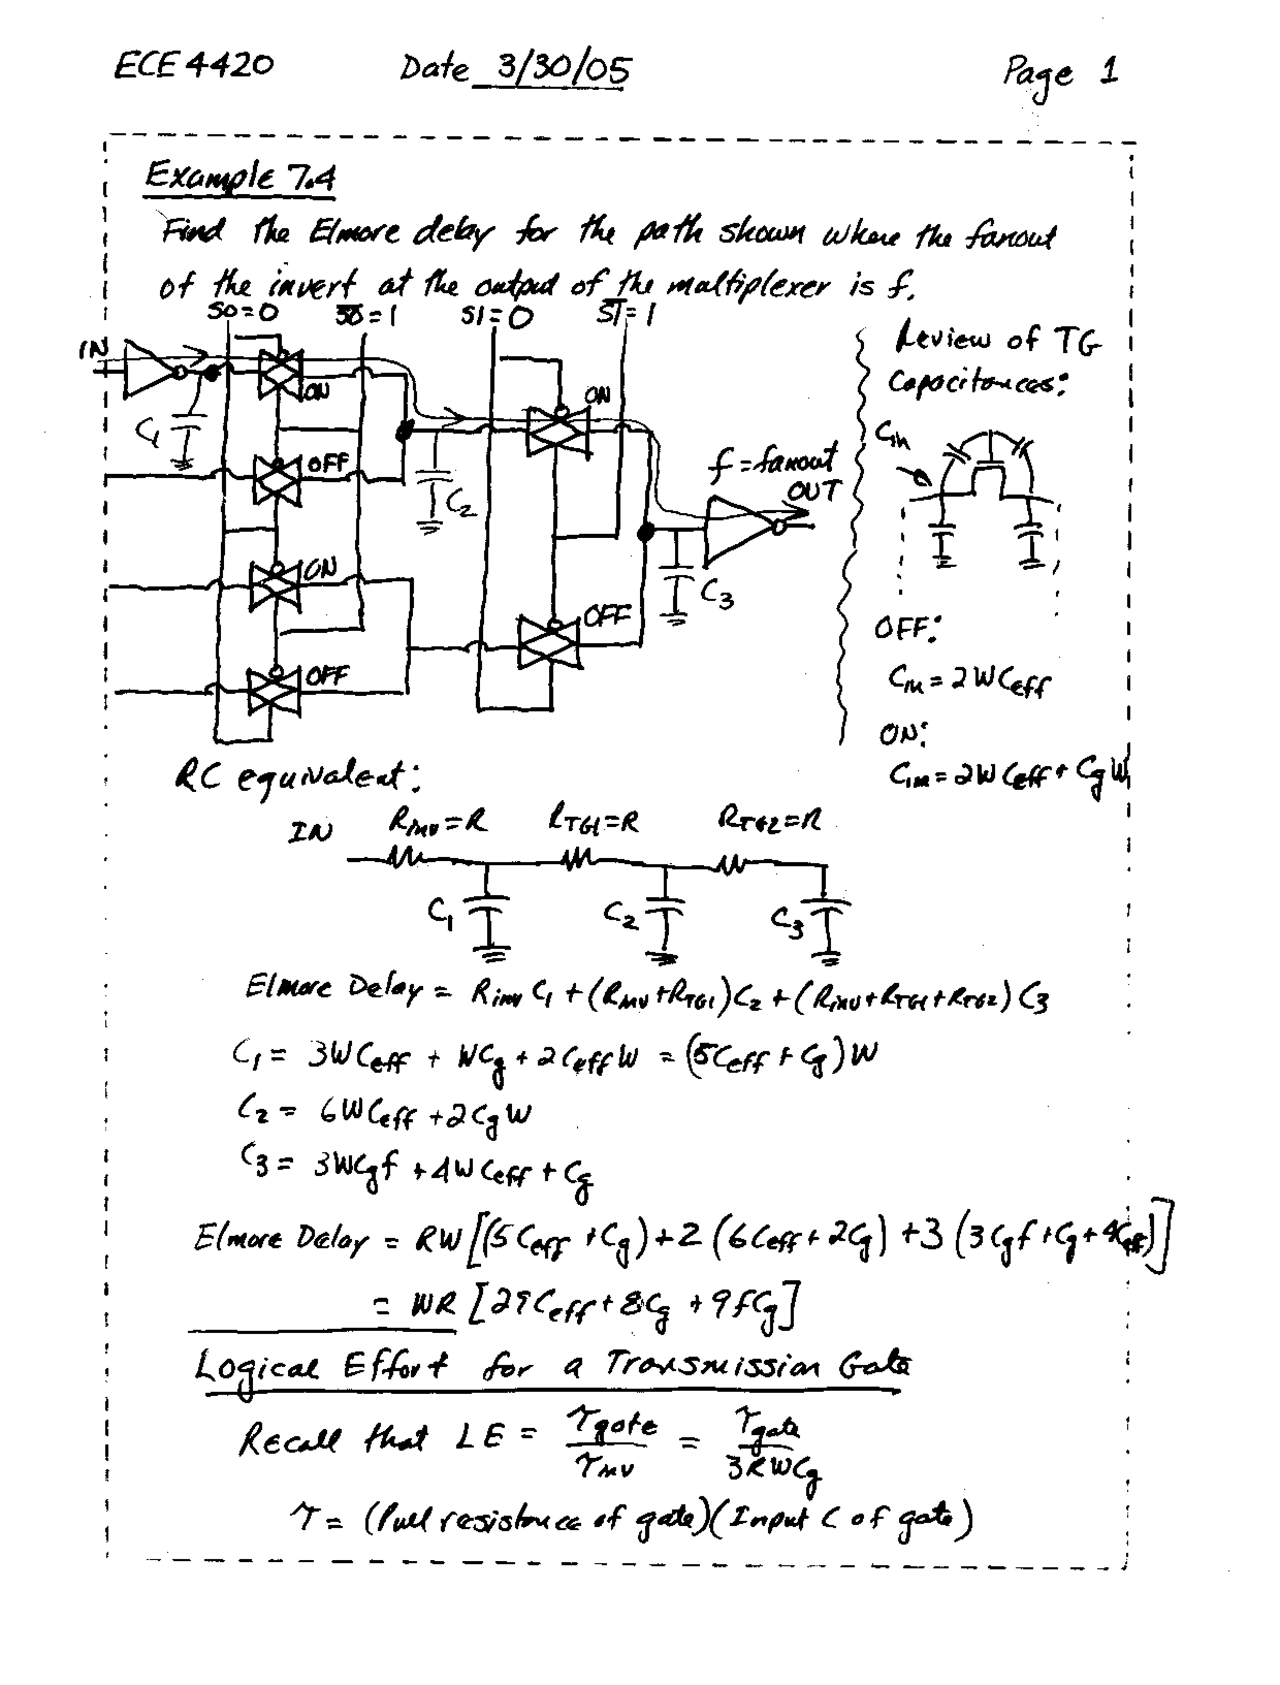 ECE 4420 Date 3/30/05 Page 1
Example 7.4
Find the Elmore delay for the path shown where the fanout
of the invert at the output of the multiplexer is f.
S0=0 S̅0̅=1 S1=0 S̅1̅=1
IN
C1
ON
OFF
ON
OFF
C2
ON
OFF
f=fanout
OUT
C3
Review of TG
Capacitances:
Cin
OFF:
Cin = 2WCeff
ON:
Cin = 2WCeff + CgW
RC equivalent:
IN Rinv=R RTG1=R RTG2=R
C1 C2 C3
Elmore Delay = Rinv C1 + (Rinv+RTG1)C2 + (Rinv+RTG1+RTG2) C3
C1 = 3WCeff + WCg + 2CeffW = (5Ceff + Cg)W
C2 = 6WCeff + 2CgW
C3 = 3WCgf + 4WCeff + Cg
Elmore Delay = RW[(5Ceff + Cg) + 2(6Ceff + 2Cg) + 3(3Cgf + Cg + 4Ceff)]
= WR [29Ceff + 8Cg + 9fCg]
Logical Effort for a Transmission Gate
Recall that LE = τgate/τinv = τgate/3RWCg
τ = (Pull resistance of gate)(Input C of gate)